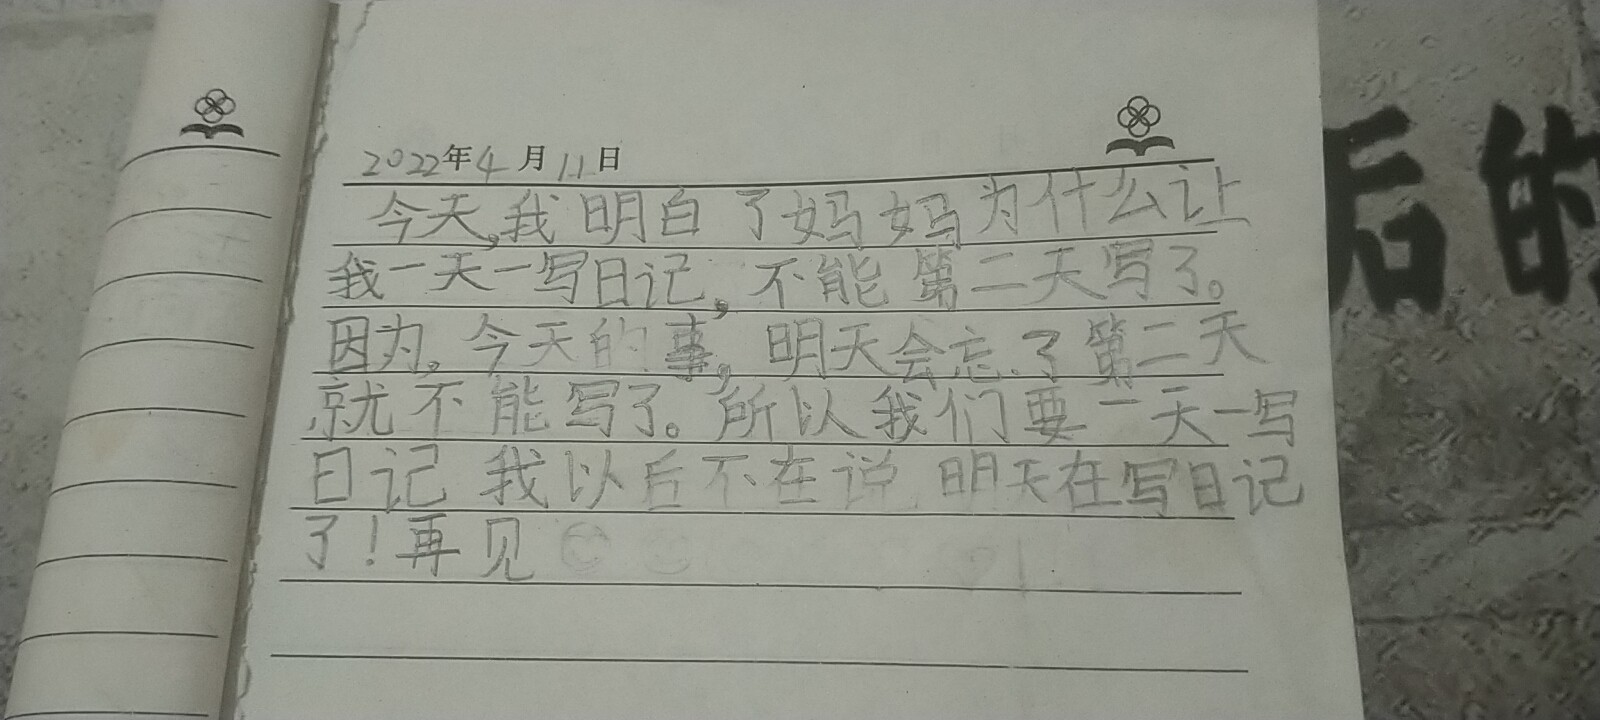 2022年4月11日
今天,我明白了妈妈为什么让
我一天一写日记,不能第二天写了。
因为。今天的事,明天会忘.了第二天
就不能写了。所以我们要一天一写
日记 我以后不在说 明天在写日记
了!再见
后的